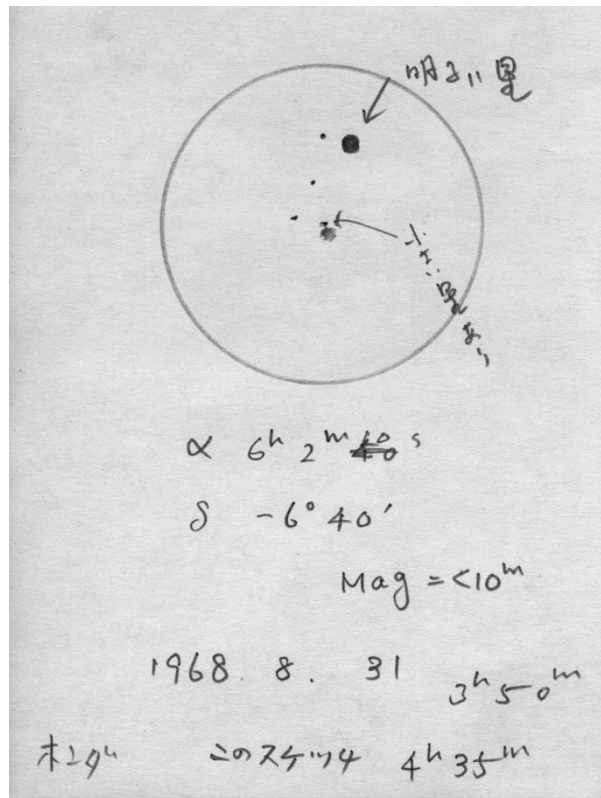 明るい星
星あり
α 6ʰ 2ᵐ 40 ˢ
δ -6° 40′
Mag = <10ᵐ
1968. 8. 31 3ʰ50ᵐ
ホンダ このスケッチ 4ʰ35ᵐ